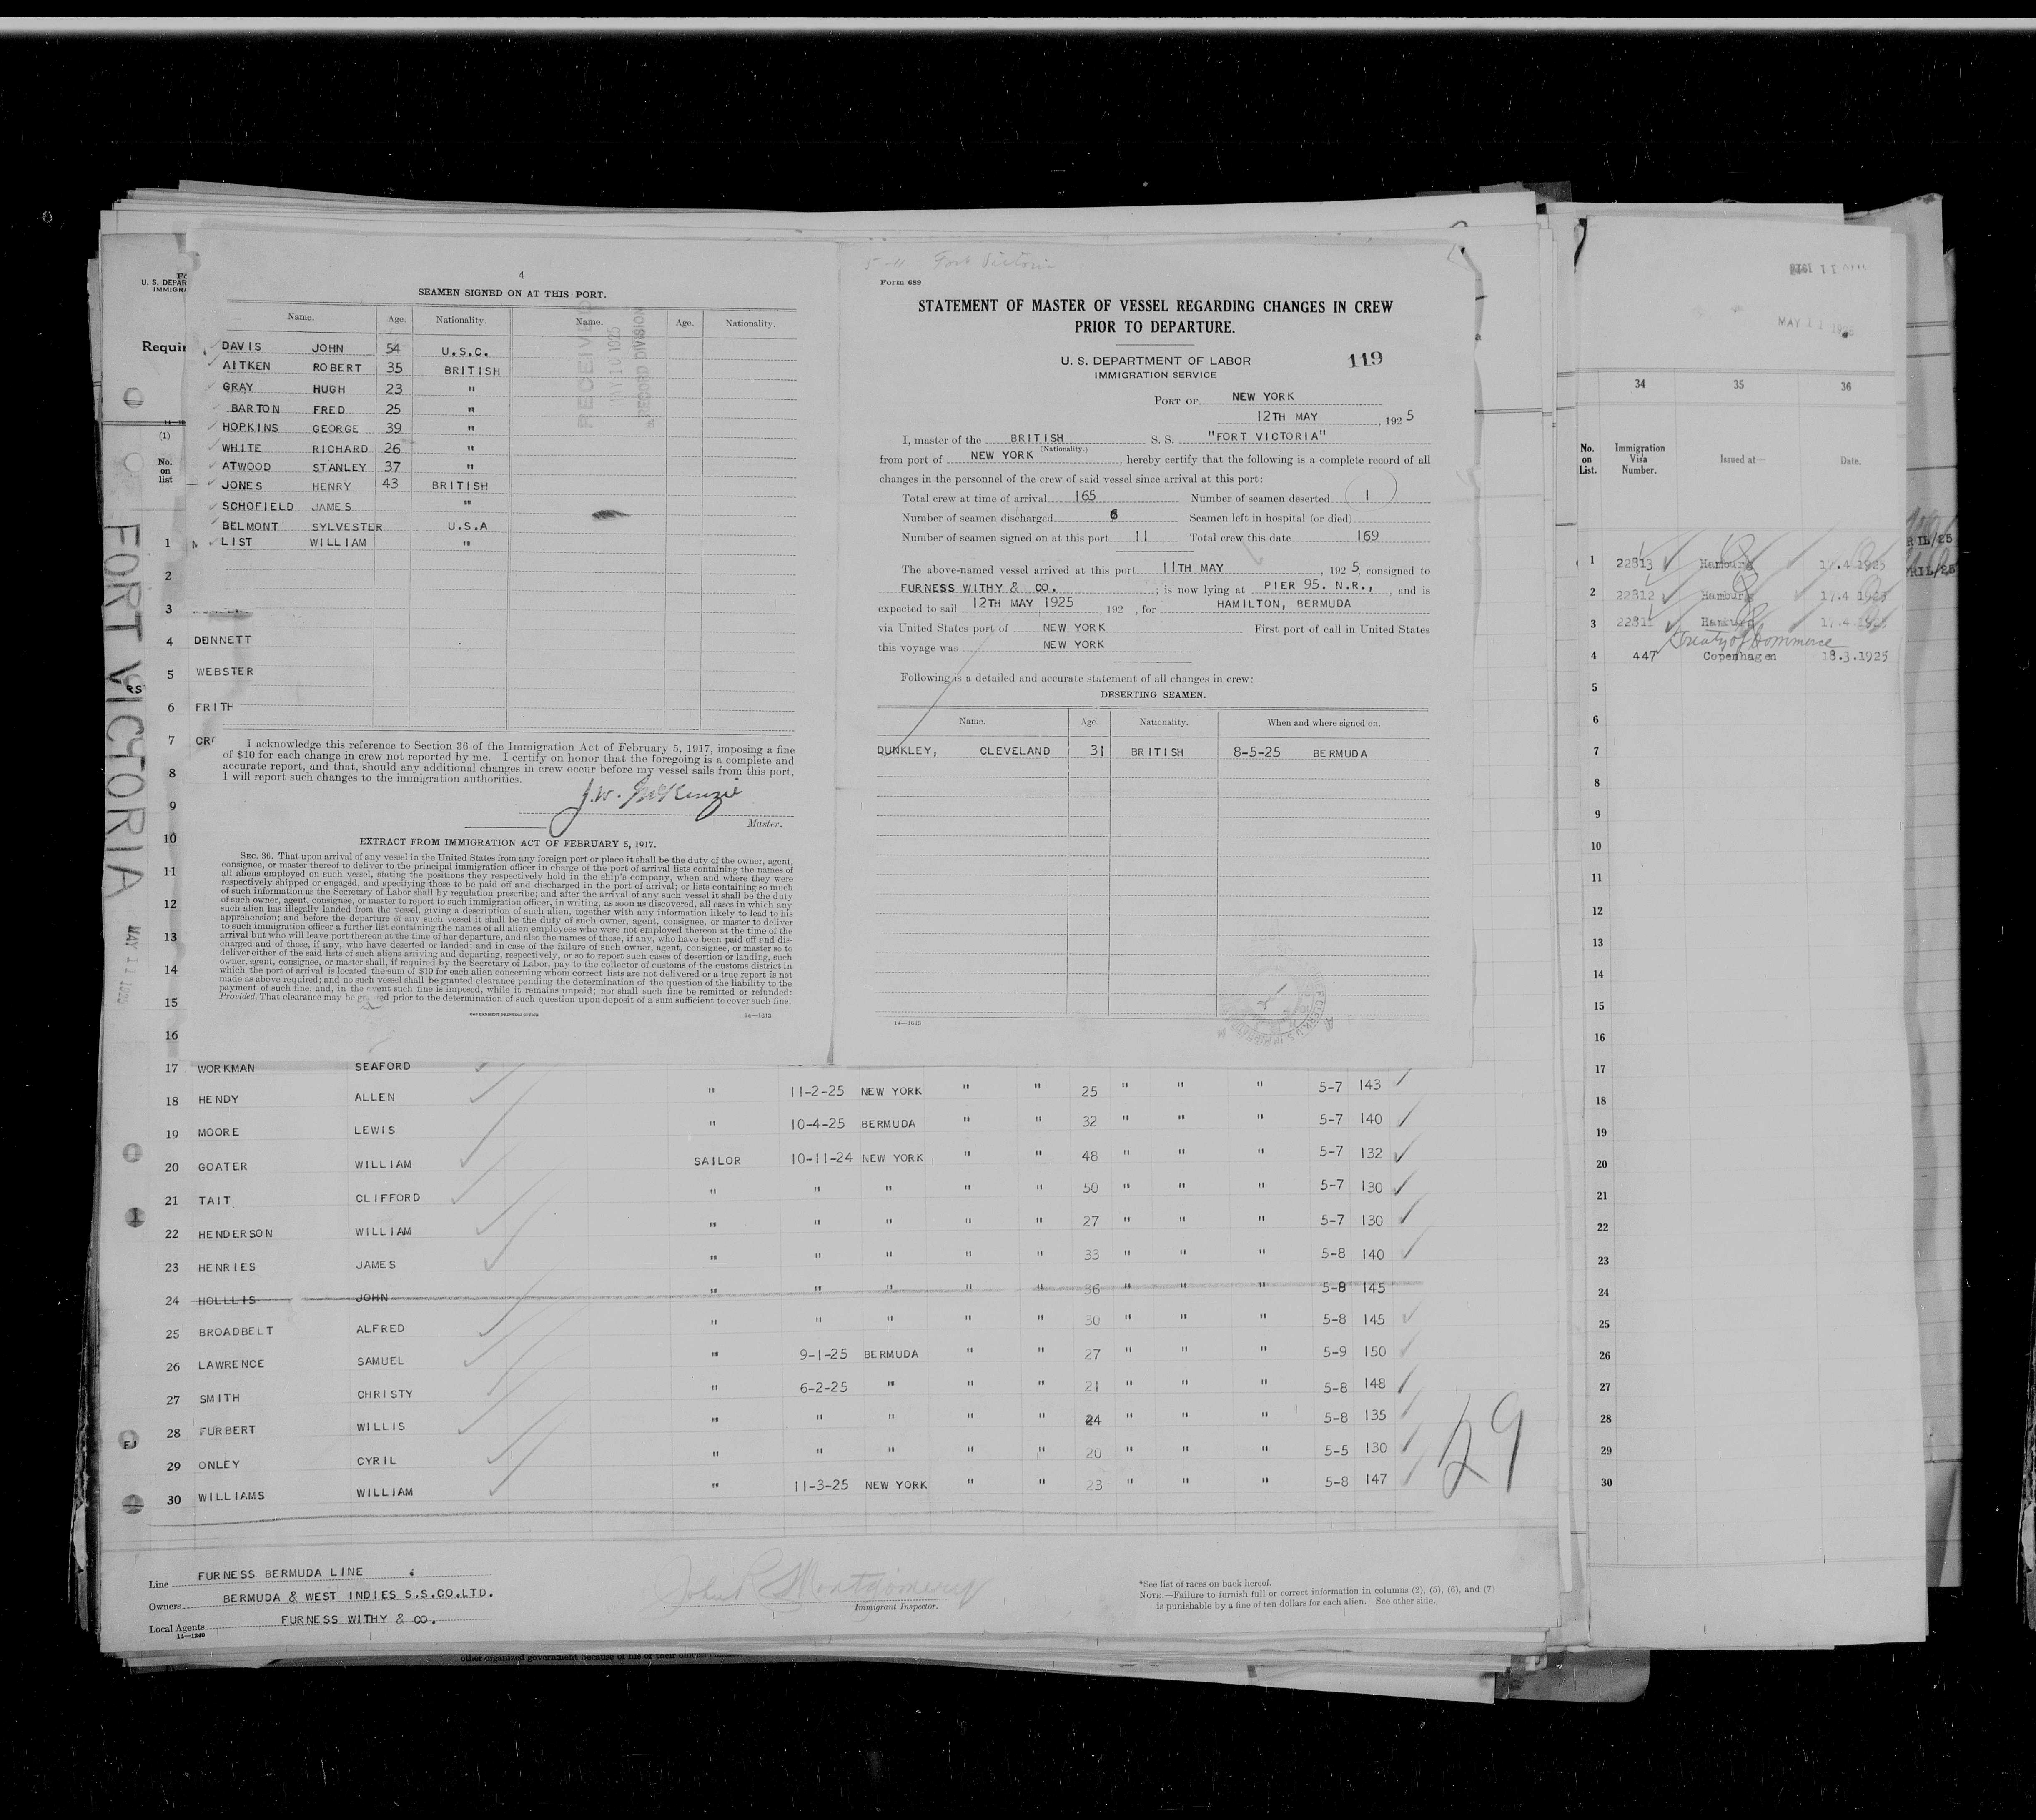 4
SEAMEN SIGNED ON AT THIS PORT.
Name. Age. Nationality. Name. Age. Nationality.
DAVIS JOHN 54 U.S.C.
AITKEN ROBERT 35 BRITISH
GRAY HUGH 23 "
BARTON FRED 25 "
HOPKINS GEORGE 39 "
WHITE RICHARD 26 "
ATWOOD STANLEY 37 "
JONES HENRY 43 BRITISH
SCHOFIELD JAMES "
BELMONT SYLVESTER U.S.A
LIST WILLIAM "
RECEIVED
1925
RECORD DIVISION
I acknowledge this reference to Section 36 of the Immigration Act of February 5, 1917, imposing a fine
of $10 for each change in crew not reported by me. I certify on honor that the foregoing is a complete and
accurate report, and that, should any additional changes in crew occur before my vessel sails from this port,
I will report such changes to the immigration authorities.
J. W. McKenzie
Master.
EXTRACT FROM IMMIGRATION ACT OF FEBRUARY 5, 1917.
SEC. 36. That upon arrival of any vessel in the United States from any foreign port or place it shall be the duty of the owner, agent,
consignee, or master thereof to deliver to the principal immigration officer in charge of the port of arrival lists containing the names of
all aliens employed on such vessel, stating the positions they respectively hold in the ship's company, when and where they were
respectively shipped or engaged, and specifying those to be paid off and discharged in the port of arrival; or lists containing so much
of such information as the Secretary of Labor shall by regulation prescribe; and after the arrival of any such vessel it shall be the duty
of such owner, agent, consignee, or master to report to such immigration officer, in writing, as soon as discovered, all cases in which any
such alien has illegally landed from the vessel, giving a description of such alien, together with any information likely to lead to his
apprehension; and before the departure of any such vessel it shall be the duty of such owner, agent, consignee, or master to deliver
to such immigration officer a further list containing the names of all alien employees who were not employed thereon at the time of the
arrival but who will leave port thereon at the time of her departure, and also the names of those, if any, who have been paid off and dis-
charged and of those, if any, who have deserted or landed; and in case of the failure of such owner, agent, consignee, or master so to
deliver either of the said lists of such aliens arriving and departing, respectively, or so to report such cases of desertion or landing, such
owner, agent, consignee, or master shall, if required by the Secretary of Labor, pay to the collector of customs of the customs district in
which the port of arrival is located the sum of $10 for each alien concerning whom correct lists are not delivered or a true report is not
made as above required; and no such vessel shall be granted clearance pending the determination of the question of the liability to the
payment of such fine, and, in the event such fine is imposed, while it remains unpaid; nor shall such fine be remitted or refunded:
Provided, That clearance may be granted prior to the determination of such question upon deposit of a sum sufficient to cover such fine.
GOVERNMENT PRINTING OFFICE 14—1613
Fort Victoria
Form 689
STATEMENT OF MASTER OF VESSEL REGARDING CHANGES IN CREW
PRIOR TO DEPARTURE.
U. S. DEPARTMENT OF LABOR
IMMIGRATION SERVICE
119
PORT OF NEW YORK
12TH MAY, 1925
I, master of the BRITISH S. S. "FORT VICTORIA"
(Nationality.)
from port of NEW YORK, hereby certify that the following is a complete record of all
changes in the personnel of the crew of said vessel since arrival at this port:
Total crew at time of arrival 165 Number of seamen deserted 1
Number of seamen discharged 6 Seamen left in hospital (or died)
Number of seamen signed on at this port 11 Total crew this date 169
The above-named vessel arrived at this port 11TH MAY, 1925, consigned to
FURNESS WITHY & CO. ; is now lying at PIER 95. N.R., , and is
expected to sail 12TH MAY 1925, 192 , for HAMILTON, BERMUDA
via United States port of NEW YORK First port of call in United States
this voyage was NEW YORK
Following is a detailed and accurate statement of all changes in crew:
DESERTING SEAMEN.
Name. Age. Nationality. When and where signed on.
DUNKLEY, CLEVELAND 31 BRITISH 8-5-25 BERMUDA
14—1613
U. S. DEPAR
IMMIGRA
Requir
(1)
No.
on
list
FORT VICTORIA
MAY 11 1925
1
2
3
4 DENNETT
5 WEBSTER
6 FRITH
7 CRO
8
9
10
11
12
13
14
15
16
17 WORKMAN SEAFORD
18 HENDY ALLEN " 11-2-25 NEW YORK " " 25 " " " 5-7 143
19 MOORE LEWIS " 10-4-25 BERMUDA " " 32 " " " 5-7 140
20 GOATER WILLIAM SAILOR 10-11-24 NEW YORK " " 48 " " " 5-7 132
21 TAIT CLIFFORD " " " " " 50 " " " 5-7 130
22 HENDERSON WILLIAM " " " " " 27 " " " 5-7 130
23 HENRIES JAMES " " " " " 33 " " " 5-8 140
24 HOLLLIS JOHN " " " " " 36 " " " 5-8 145
25 BROADBELT ALFRED " " " " " 30 " " " 5-8 145
26 LAWRENCE SAMUEL " 9-1-25 BERMUDA " " 27 " " " 5-9 150
27 SMITH CHRISTY " 6-2-25 " " " 21 " " " 5-8 148
28 FURBERT WILLIS " " " " " 24 " " " 5-8 135
29 ONLEY CYRIL " " " " " 20 " " " 5-5 130
30 WILLIAMS WILLIAM " 11-3-25 NEW YORK " " 23 " " " 5-8 147
29
Line FURNESS BERMUDA LINE
Owners BERMUDA & WEST INDIES S.S.CO.LTD.
Local Agents FURNESS WITHY & CO.
14—1240
John R Montgomery
Immigrant Inspector.
*See list of races on back hereof.
NOTE.—Failure to furnish full or correct information in columns (2), (5), (6), and (7)
is punishable by a fine of ten dollars for each alien. See other side.
other organized government because of his or their official
MAY 11 1925
34 35 36
No. on List. Immigration Visa Number. Issued at— Date.
1 22813 Hamburg 17.4 1925
2 22812 Hamburg 17.4 1925
3 2281 Hamburg 17.4 1925
Treaty of Commerce
4 447 Copenhagen 18.3.1925
5
6
7
8
9
10
11
12
13
14
15
16
17
18
19
20
21
22
23
24
25
26
27
28
29
30
RIL/25
RIL/25